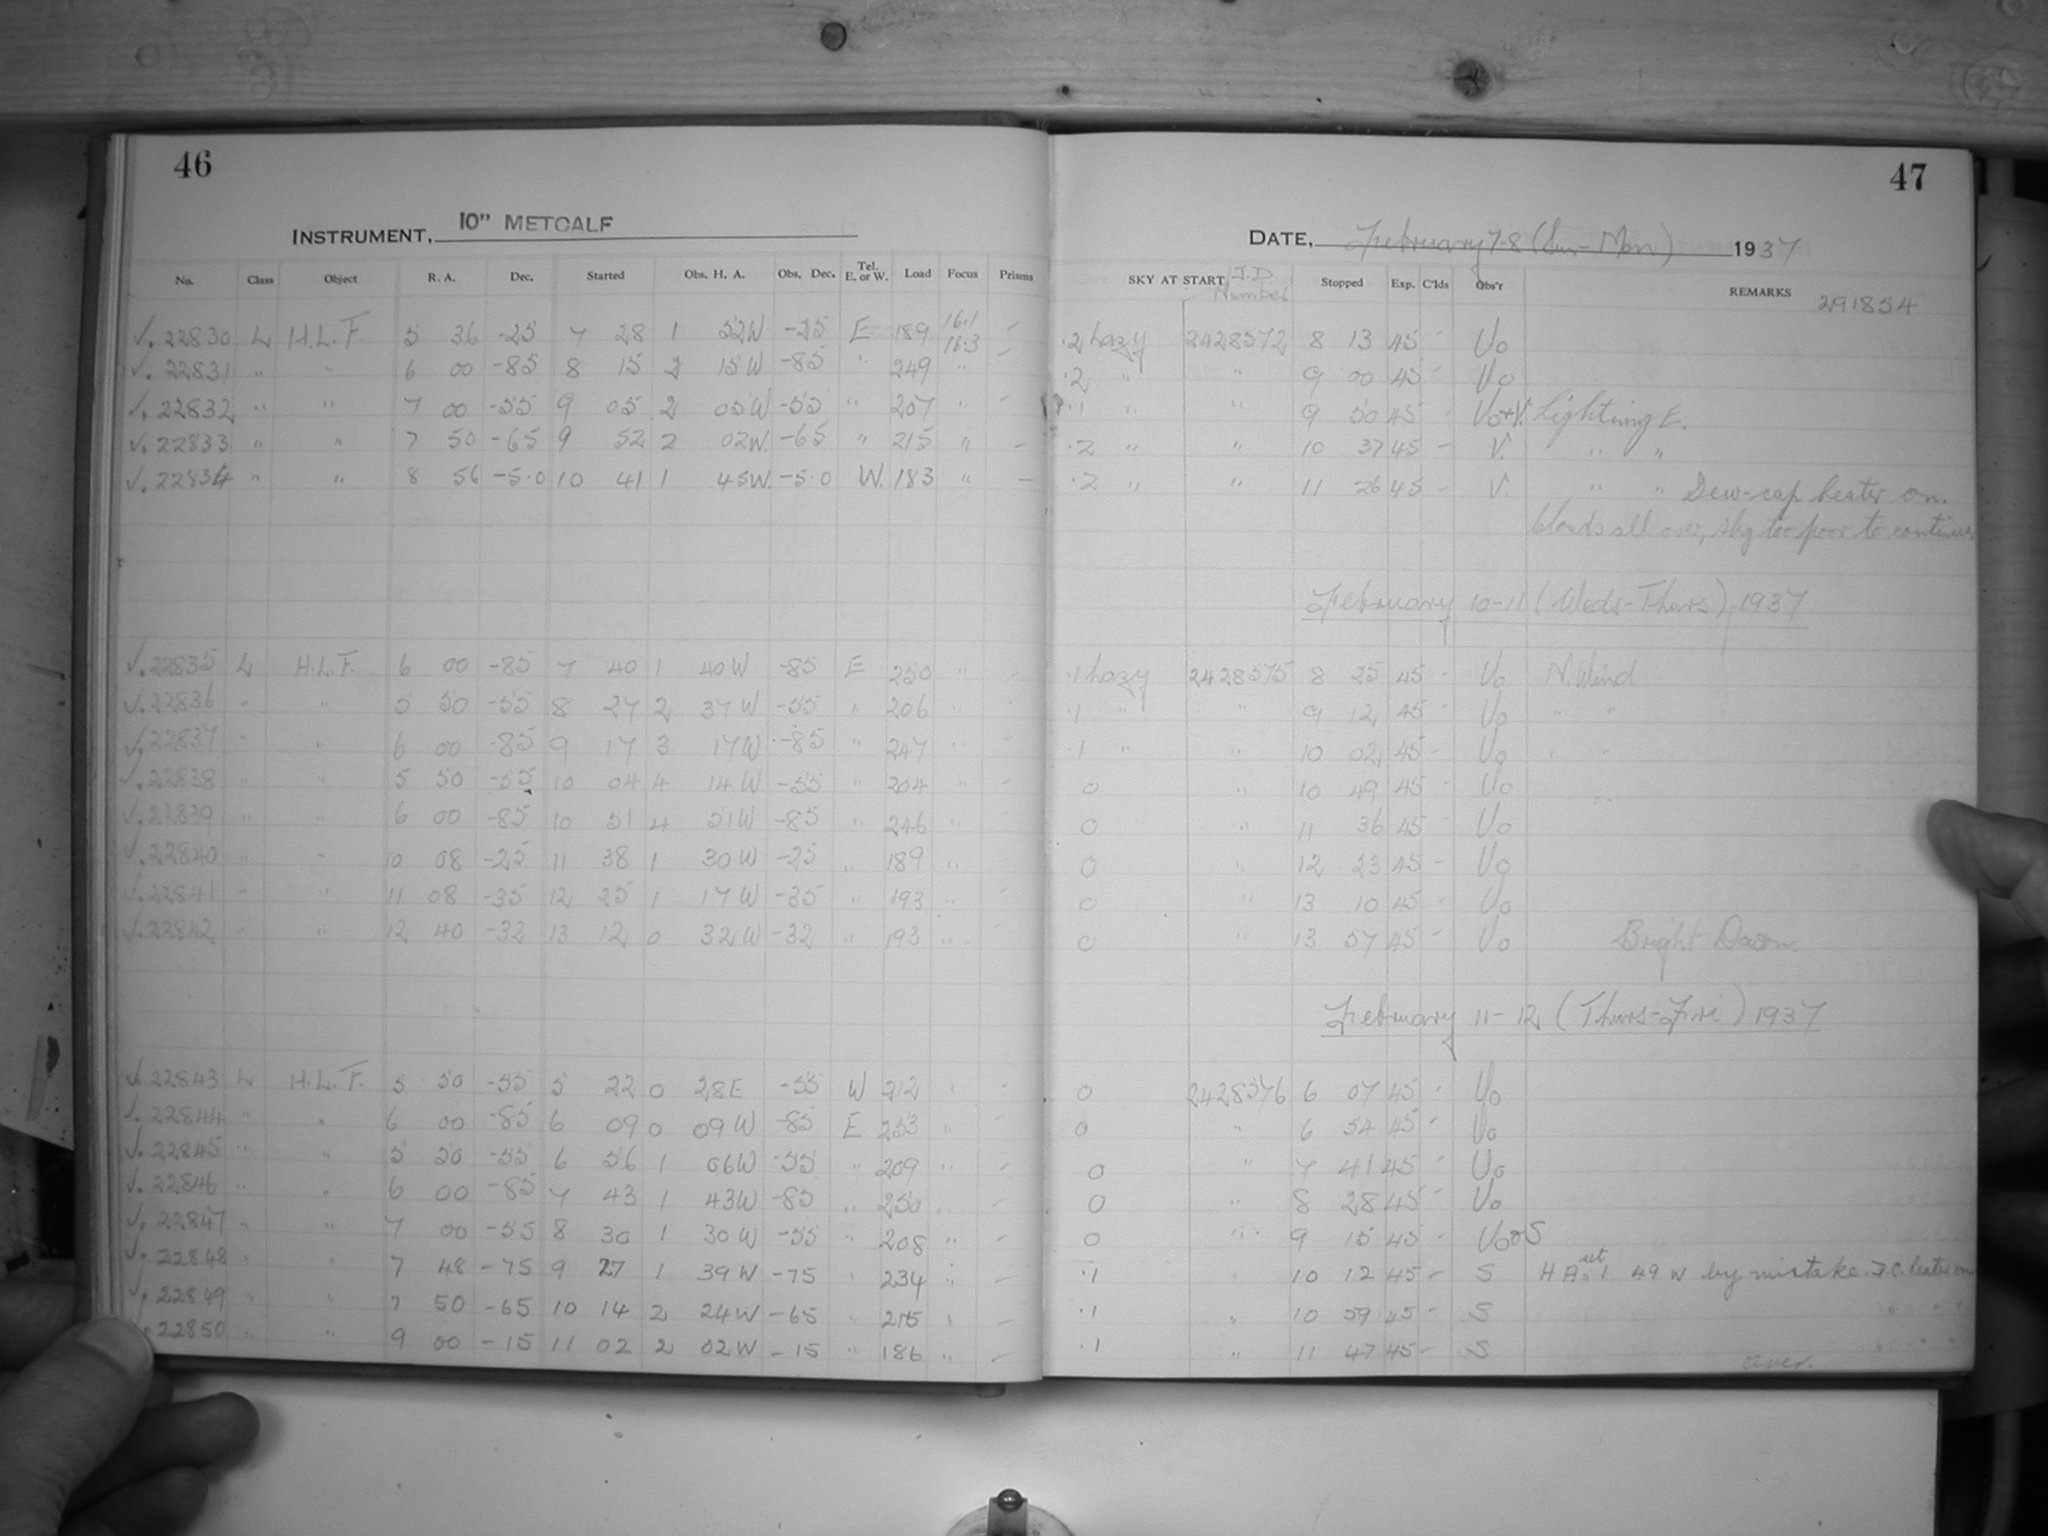 46
INSTRUMENT, 10" METCALF
No. Class Object R. A. Dec. Started Obs. H. A. Obs. Dec. Tel. E. or W. Load Focus Prisms
√. 22830 L H.L.F. 5 36 -25 7 28 1 52W -25 E 189 16.1 16.3 -
√. 22831 " " 6 00 -85 8 15 2 15W -85 " 249 " -
√. 22832 " " 7 00 -55 9 05 2 05W -55 " 207 " -
√. 22833 " " 7 50 -65 9 52 2 02W. -65 " 215 " -
√. 22834 " " 8 56 -5.0 10 41 1 45W. -5.0 W. 183 " -
√. 22835 L H.L.F. 6 00 -85 7 40 1 40W -85 E 250 " -
√. 22836 " " 5 50 -55 8 27 2 37W -55 " 206 " -
√. 22837 " " 6 00 -85 9 17 3 17W -85 " 247 " -
√. 22838 " " 5 50 -55 10 04 4 14W -55 " 204 " -
√. 22839 " " 6 00 -85 10 51 4 51W -85 " 246 " -
√. 22840 " " 10 08 -25 11 38 1 30W -25 " 189 " -
√. 22841 " " 11 08 -35 12 25 1 17W -35 " 193 " -
√. 22842 " " 12 40 -32 13 12 0 32W -32 " 193 " -
√. 22843 L H.L.F. 5 50 -55 5 22 0 28E -55 W 212 " -
√. 22844 " " 6 00 -85 6 09 0 09W -85 E 253 " -
√. 22845 " " 5 50 -55 6 56 1 06W -55 " 209 " -
√. 22846 " " 6 00 -85 7 43 1 43W -85 " 250 " -
√. 22847 " " 7 00 -55 8 30 1 30W -55 " 208 " -
√. 22848 " " 7 48 -75 9 27 1 39W -75 " 234 " -
√. 22849 " " 7 50 -65 10 14 2 24W -65 " 215 " -
√. 22850 " " 9 00 -15 11 02 2 02W -15 " 186 " -
47
DATE, February 7-8 (Sun-Mon) 1937
SKY AT START J.D. Number Stopped Exp. C'lds Obs'r REMARKS 291854
.2 hazy 2428572 8 13 45 - Uo
.2 " " 9 00 45 - Uo
.1 " " 9 50 45 - Uo+V. Lightning E.
.2 " " 10 37 45 - V. " "
.2 " " 11 26 45 - V. " " Dew-cap heater on.
Clouds all over, sky too poor to continue.
February 10-11 (Weds-Thurs) 1937
.1 hazy 2428575 8 25 45 - Uo N. Wind
.1 " " 9 12 45 - Uo " "
.1 " " 10 02 45 - Uo " "
0 " 10 49 45 - Uo
0 " 11 36 45 Uo
0 " 12 23 45 - Uo
0 " 13 10 45 - Uo
0 " 13 57 45 - Uo Bright Dawn.
February 11-12 (Thurs-Fri) 1937
0 2428576 6 07 45 - Uo
0 " 6 54 45 - Uo
0 " 7 41 45 - Uo
0 " 8 28 45 - Uo
0 " 9 15 45 - Uo S
.1 " 10 12 45 - S H A set 1 49 W by mistake. D.C. heater on
.1 " 10 59 45 - S " " "
.1 " 11 47 45 - S " " "
over.